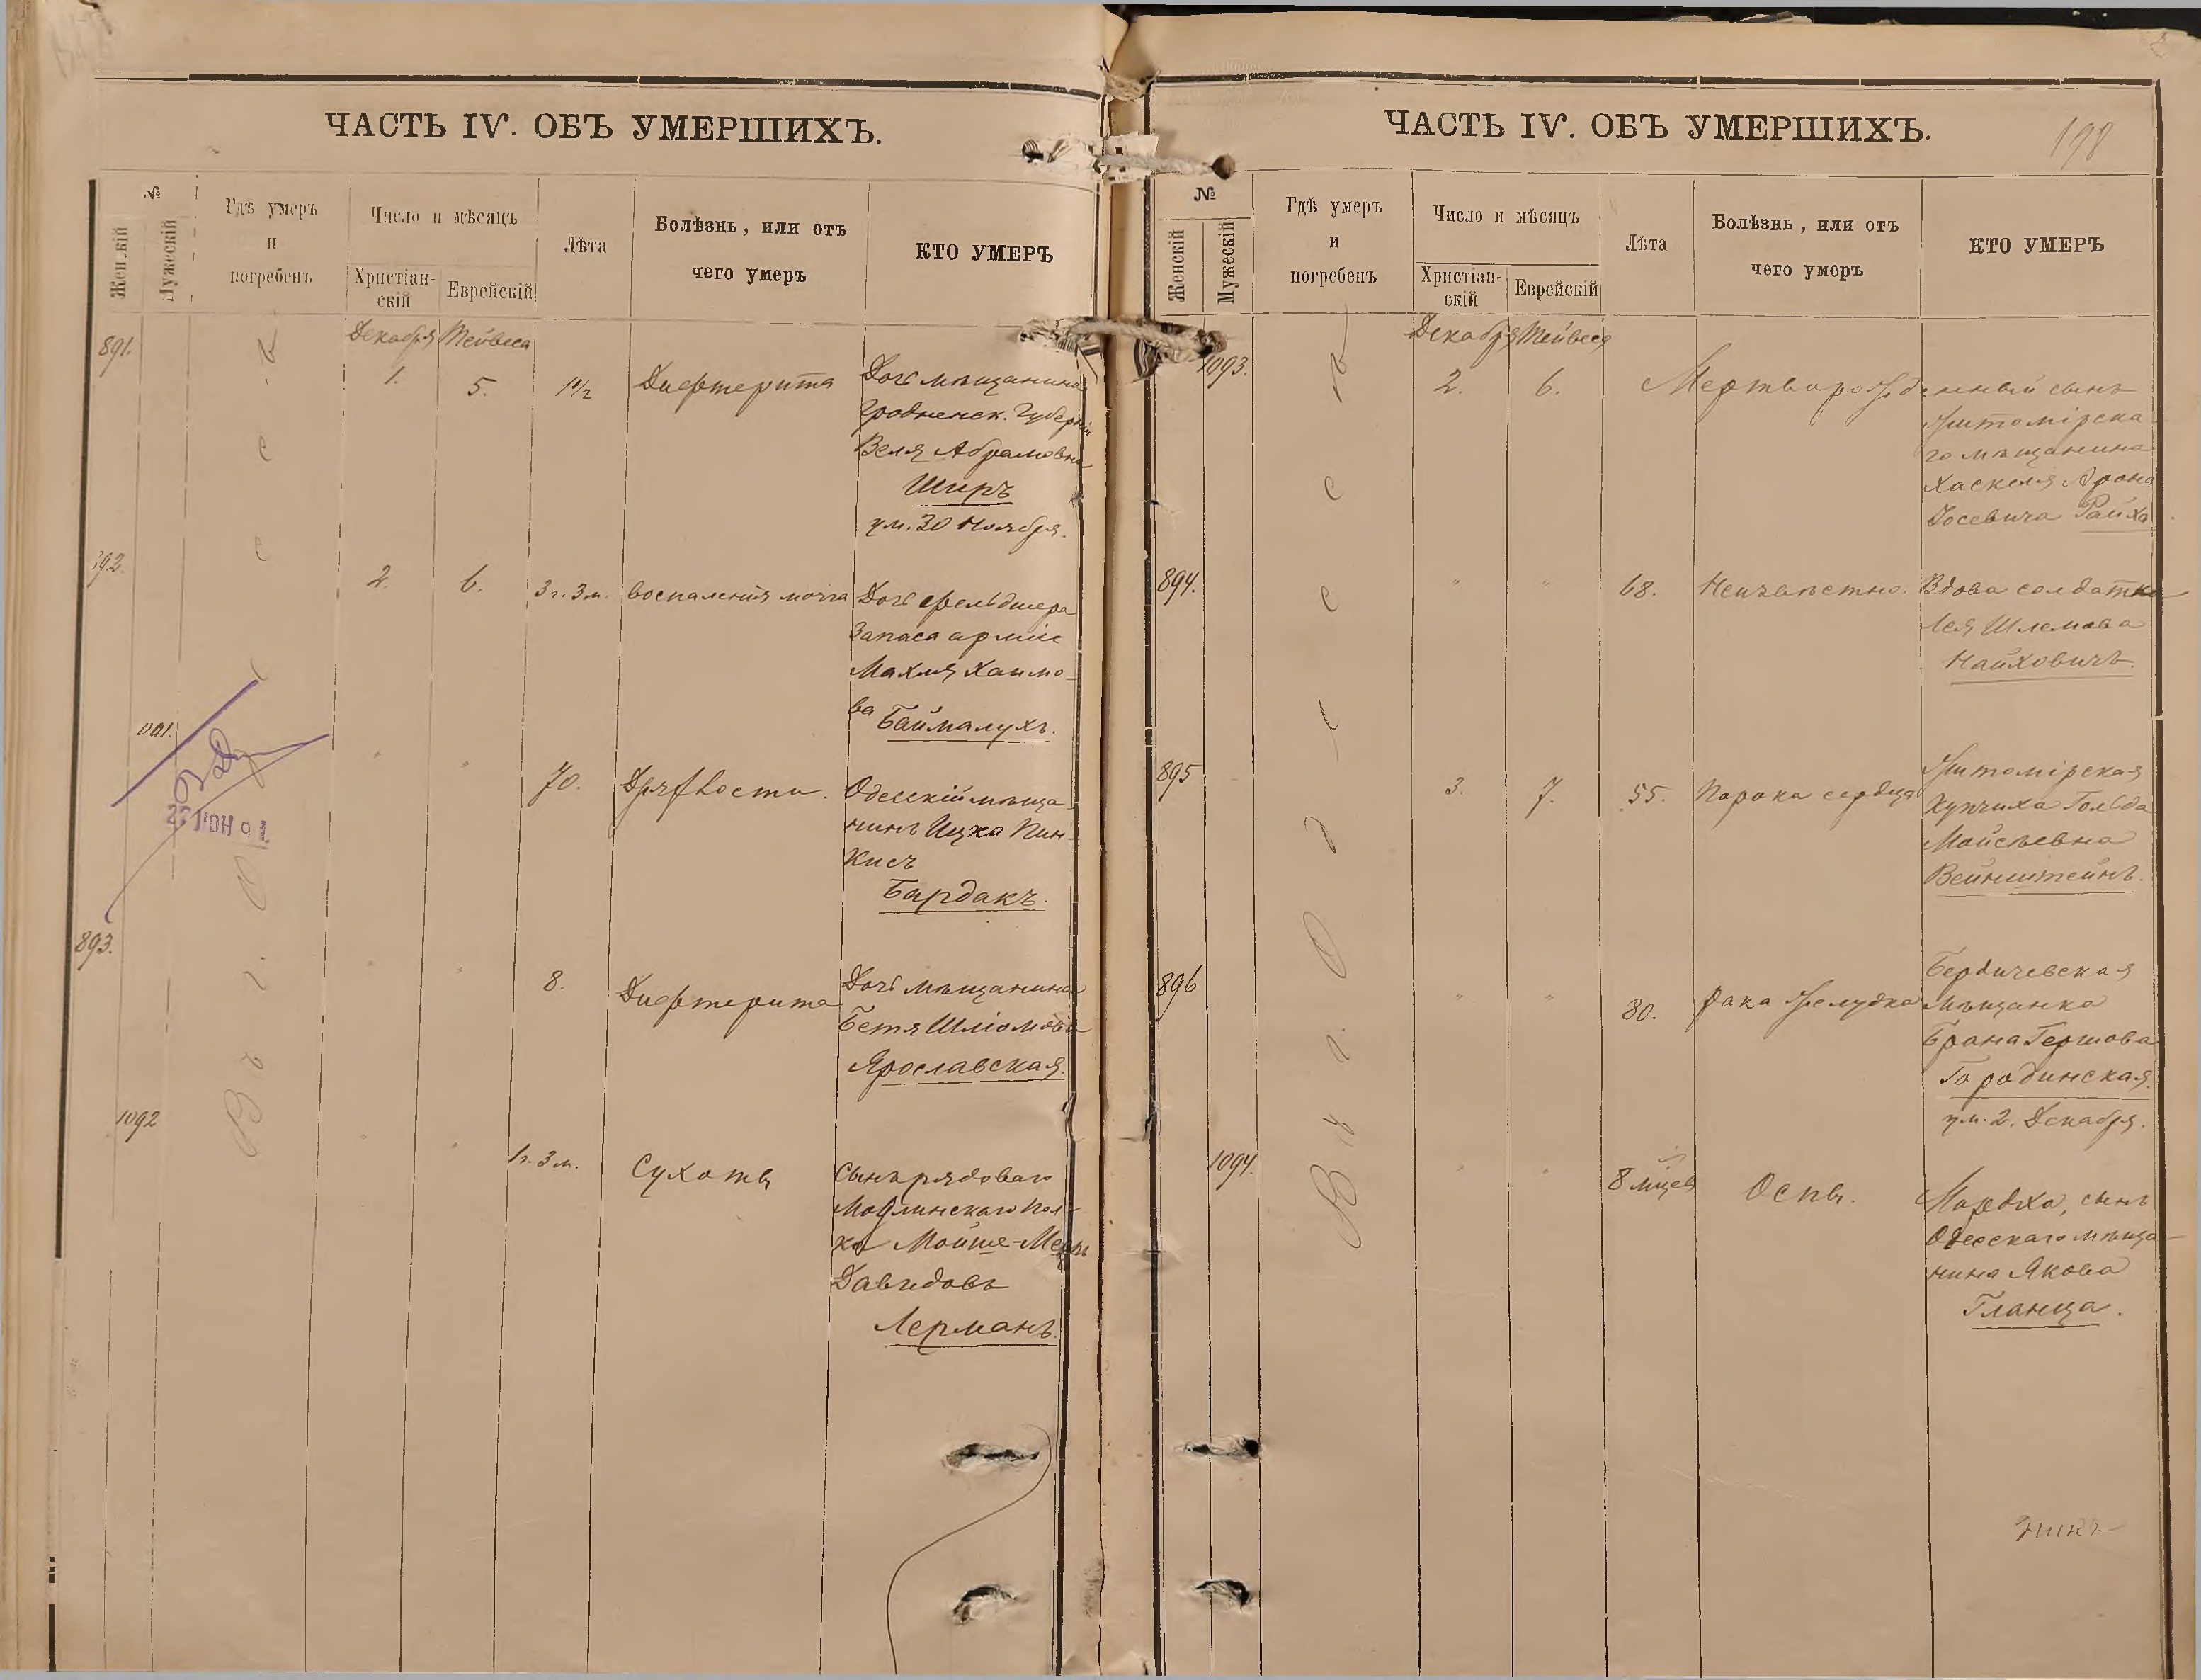 ЧАСТЬ IV. ОБЪ УМЕРШИХЪ.
№
Женскій
Мужескій
Гдѣ умеръ
и
погребенъ
Число и мѣсяцъ
Христіан-
скій
Еврейскій
Лѣта
Болѣзнь, или отъ
чего умеръ
КТО УМЕРЪ
Въ г. Одессѣ
Декабря Тейвеса
891. 1. 5. 1 1/2 Дифтерита Дочь мѣщанина
Гродненск. Губерніи
Веля Абрамовна
Ширъ
ум. 30 Ноября.
892. 2. 6. 3 г. 3 м. воспаленія мозга Дочь фельдшера
Запаса арміи
Махля Хаимо-
ва Баймалухъ.
70. Дряхлости. Одесскій мѣща-
нинъ Ицка Пин-
кисъ
Бардакъ.
25 ІЮН 91
893. 8. Дифтерита Дочь мѣщанина
Бетя Шліомова
Ярославская.
1092 1 г. 3 м. Сухоты Сынъ рядоваго
Модлинскаго пол-
ка Мойше-Мееръ
Давидовъ
Лерманъ.
ЧАСТЬ IV. ОБЪ УМЕРШИХЪ.
198
№
Женскій
Мужескій
Гдѣ умеръ
и
погребенъ
Число и мѣсяцъ
Христіан-
скій
Еврейскій
Лѣта
Болѣзнь, или отъ
чего умеръ
КТО УМЕРЪ
Въ г. Одессѣ
Декабря Тейвеса
1093. 2. 6. Мертворожденный сынъ
Житомірска
го мѣщанина
Хаскеля Арона
Іосевича Райха.
894. " " 68. Неизвѣстно. Вдова солдатка
Лея Шлемова
Найховичъ.
895 3. 7. 55. Порока сердца Житомірская
Купчиха Гольда
Мойсѣевна
Вейнштейнъ.
896 " " 80. Рака желудка Бердичевская
мѣщанка
Брана Гершова
Городинская
ум. 2. Декабря.
1094. " " 8 мѣсяц Оспы. Мордхо, сынъ
Одесскаго мѣща-
нина Якова
Гланца.